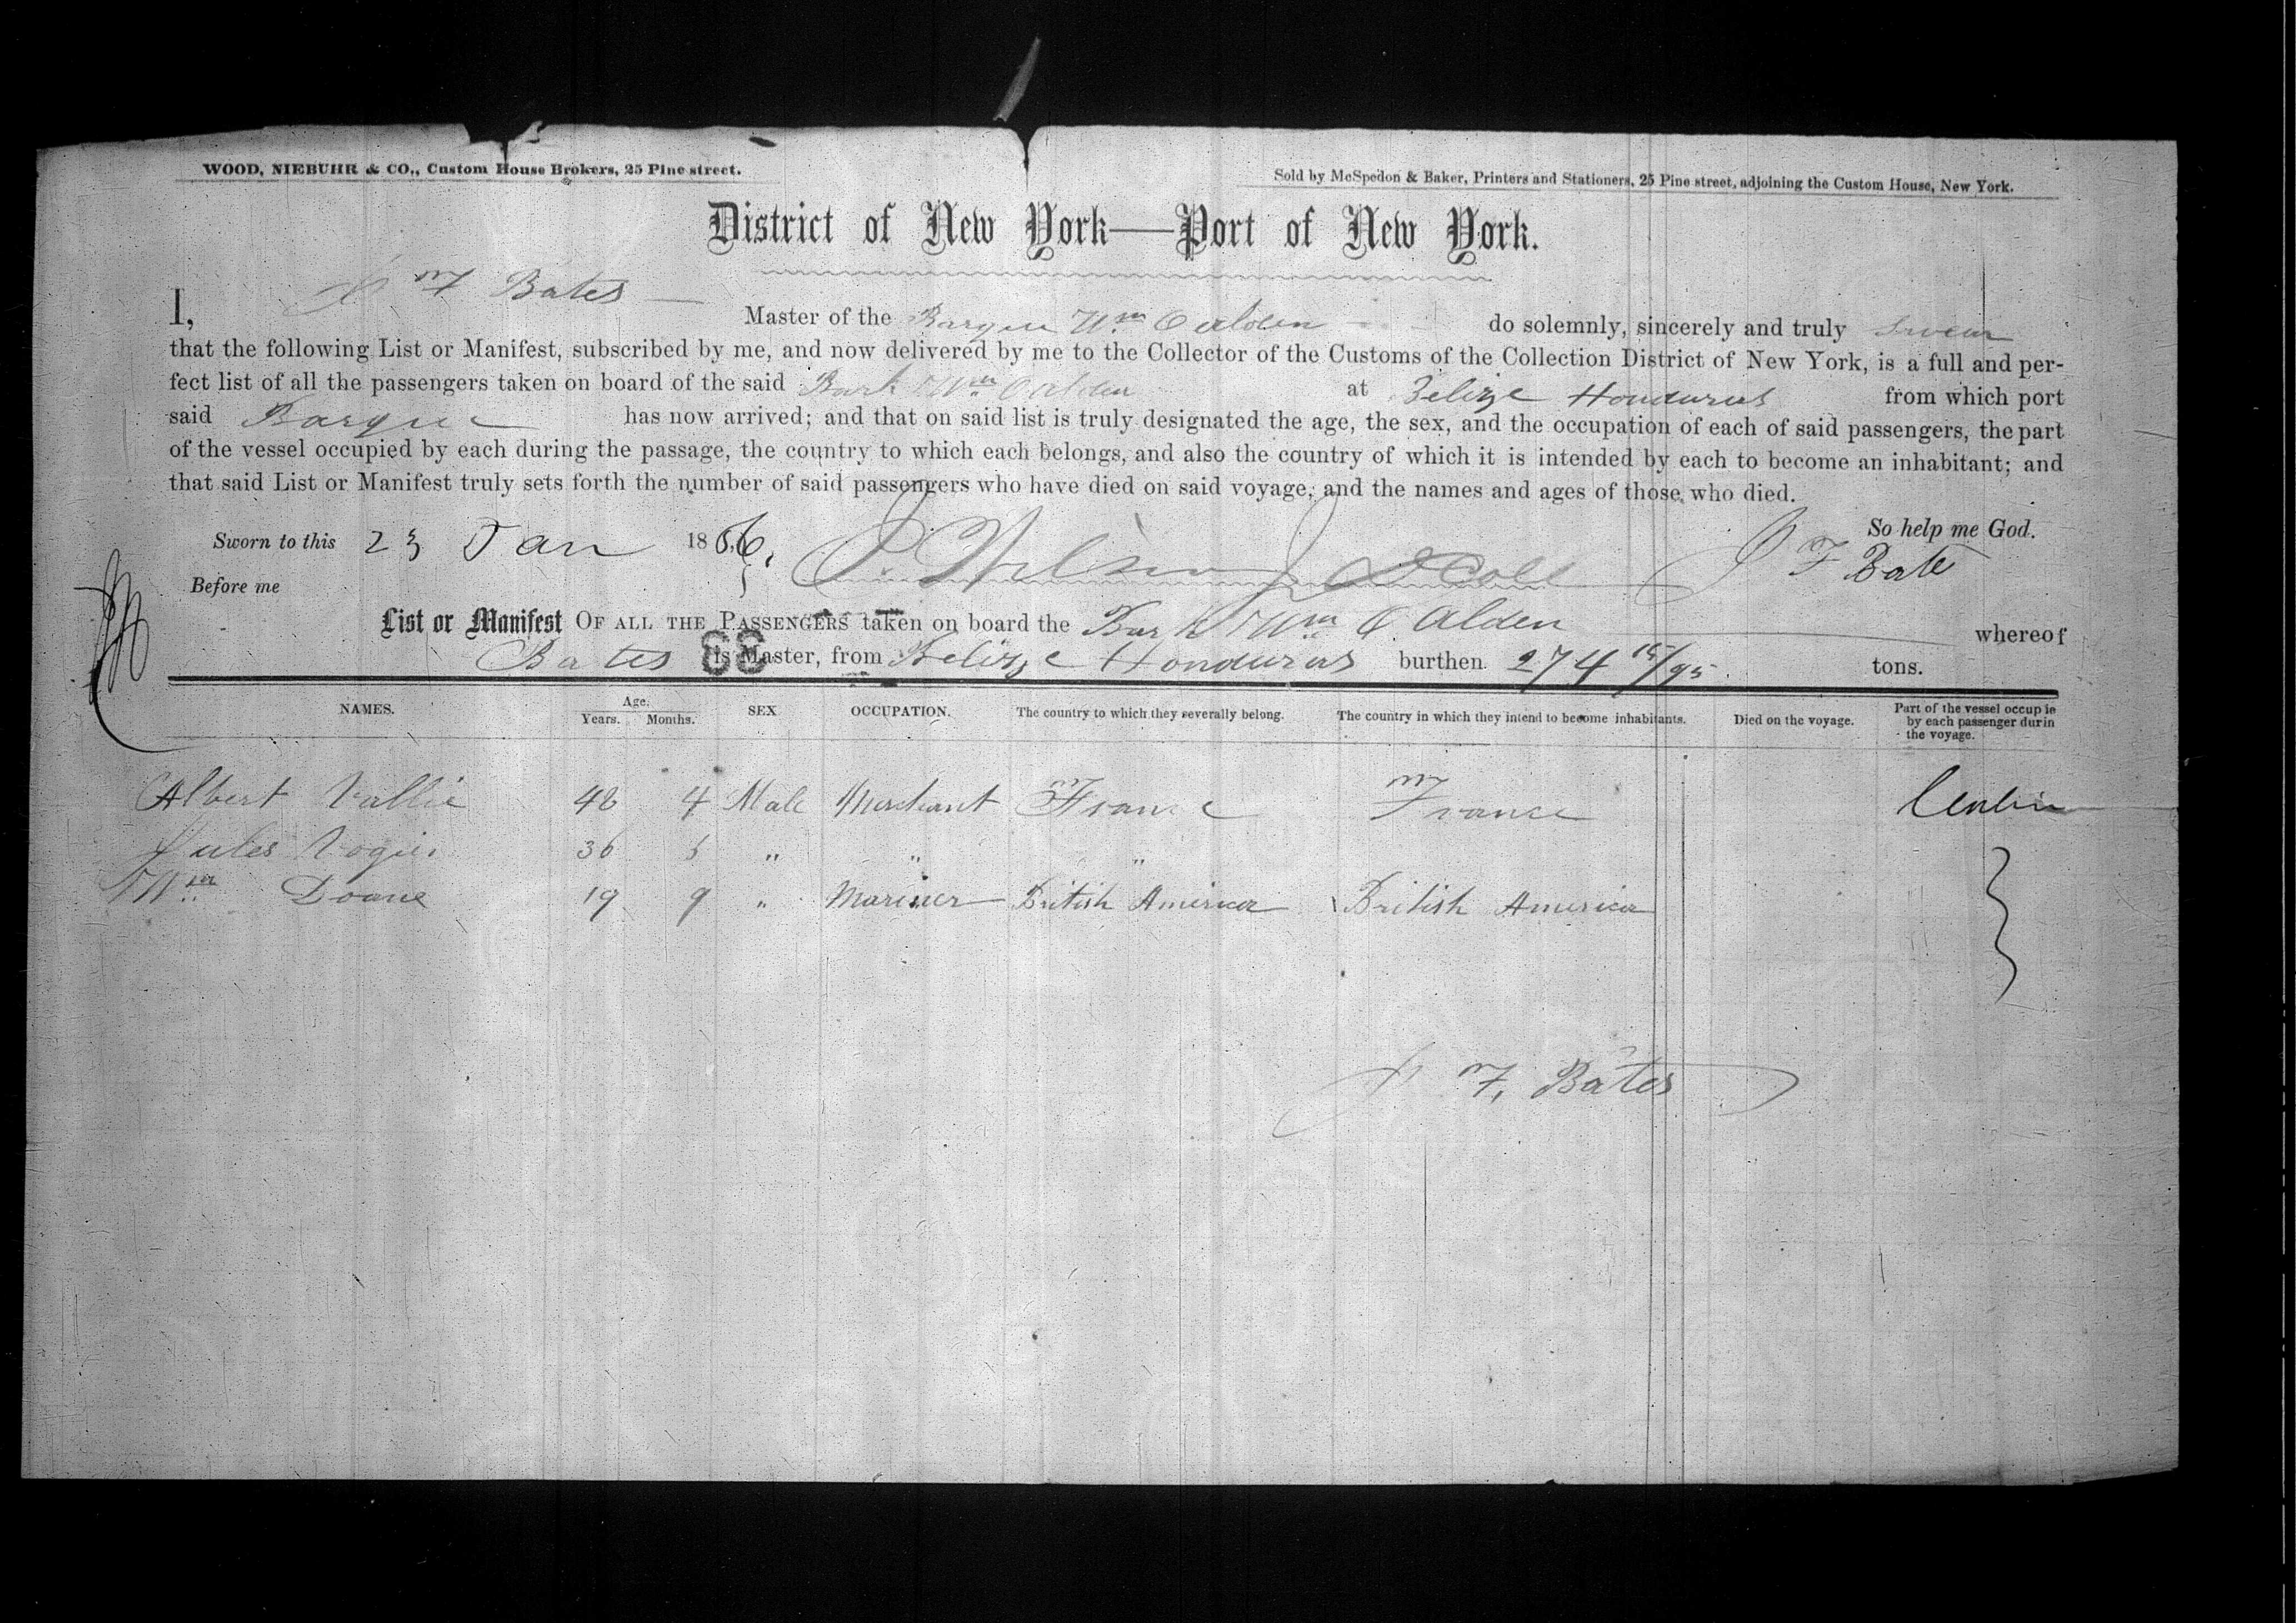 WOOD, NIEBUHR & CO., Custom House Brokers, 25 Pine street.
Sold by McSpedon & Baker, Printers and Stationers, 25 Pine street, adjoining the Custom House, New York.
District of New York—Port of New York.
I, F Bates Master of the Barque Wm O Alden do solemnly, sincerely and truly swear
that the following List or Manifest, subscribed by me, and now delivered by me to the Collector of the Customs of the Collection District of New York, is a full and per-
fect list of all the passengers taken on board of the said Bark Wm O Alden at Belize Honduras from which port
said Barque has now arrived; and that on said list is truly designated the age, the sex, and the occupation of each of said passengers, the part
of the vessel occupied by each during the passage, the country to which each belongs, and also the country of which it is intended by each to become an inhabitant; and
that said List or Manifest truly sets forth the number of said passengers who have died on said voyage, and the names and ages of those who died.
So help me God.
Sworn to this 23 Jan 1856. F Bates
Before me
List or Manifest OF ALL THE PASSENGERS taken on board the Bark Wm O Alden whereof
Bates 33 is Master, from Belize Honduras burthen 274 /95 tons.
NAMES. Age. Years. Months. SEX OCCUPATION. The country to which they severally belong. The country in which they intend to become inhabitants. Died on the voyage. Part of the vessel occupie by each passenger durin the voyage.
Albert Vallie 48 4 Male Merchant France France
Jules Vogier 36 6 " " "
Wm Doane 19 9 " Mariner British America British America
F. Bates